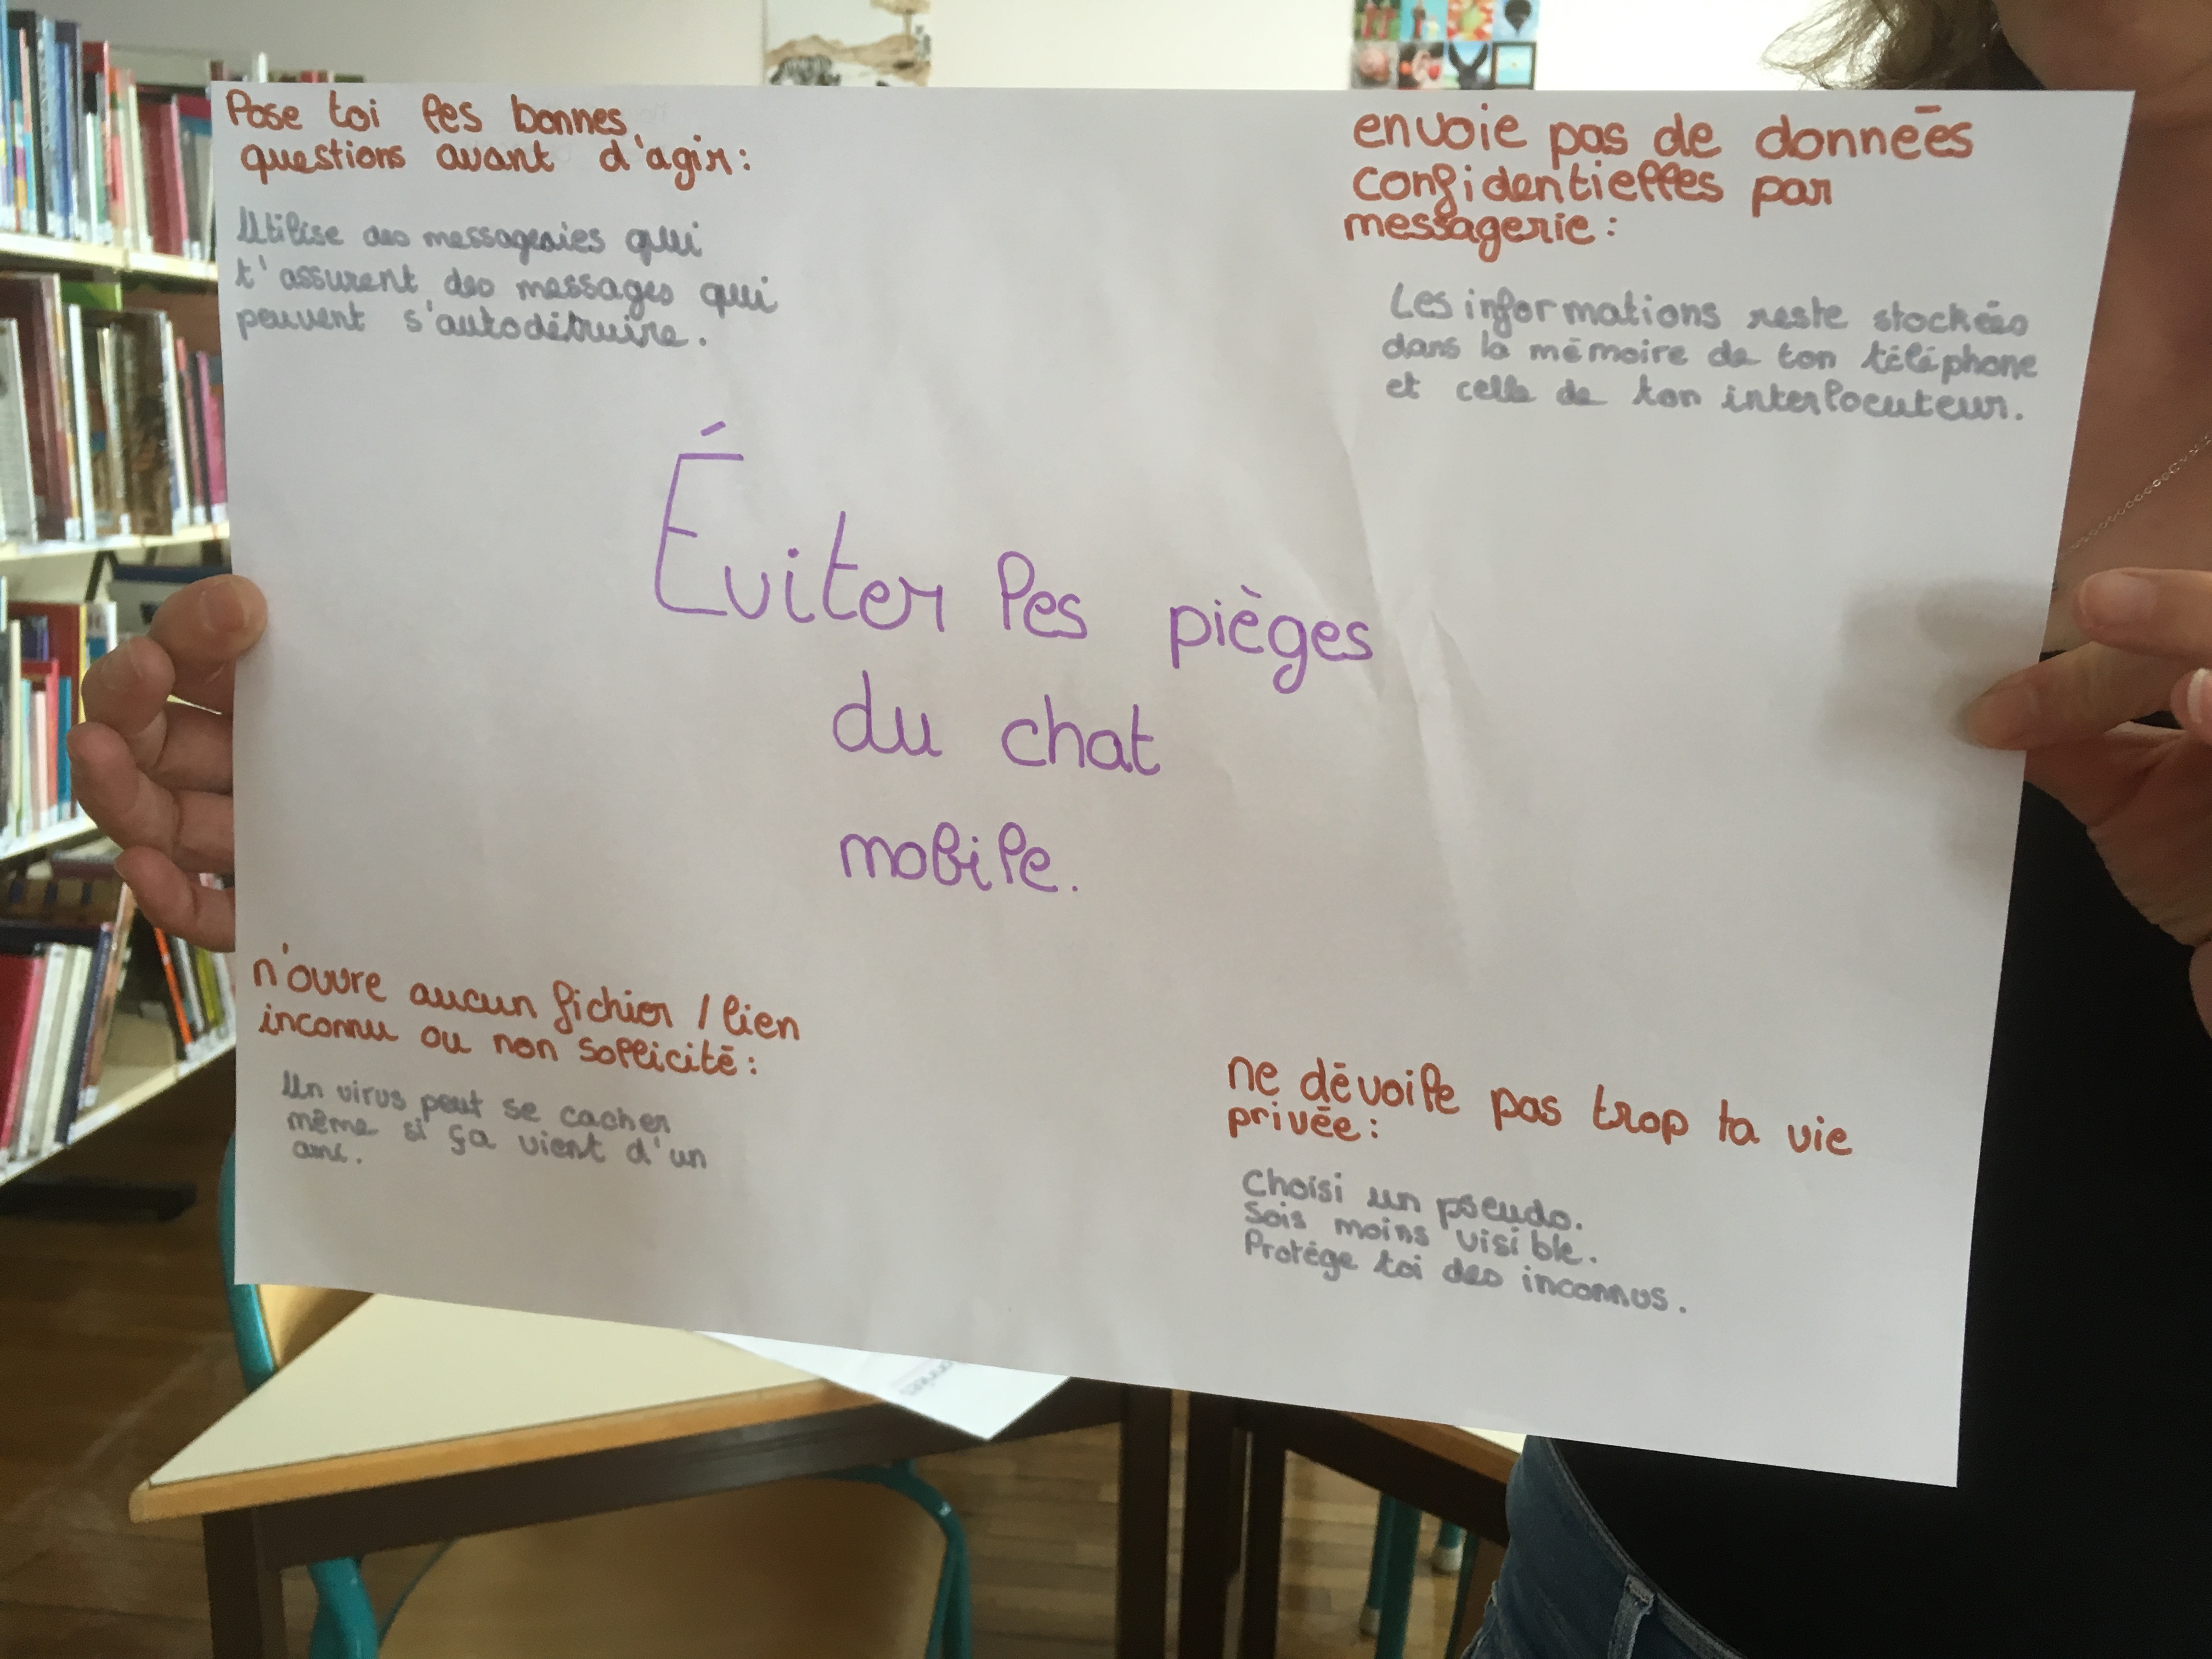 Pose toi les bonnes
questions avant d'agir:
Utilise des messageries qui
t'assurent des messages qui
peuvent s'autodétruire.
envoie pas de données
confidentielles par
messagerie:
Les informations reste stockées
dans la mémoire de ton téléphone
et celle de ton interlocuteur.
Éviter les pièges
du chat
mobile.
n'ouvre aucun fichier / lien
inconnu ou non sollicité:
Un virus peut se cacher
même si ça vient d'un
ami.
ne dévoile pas trop ta vie
privée:
Choisi un pseudo.
Sois moins visible.
Protége toi des inconnus.